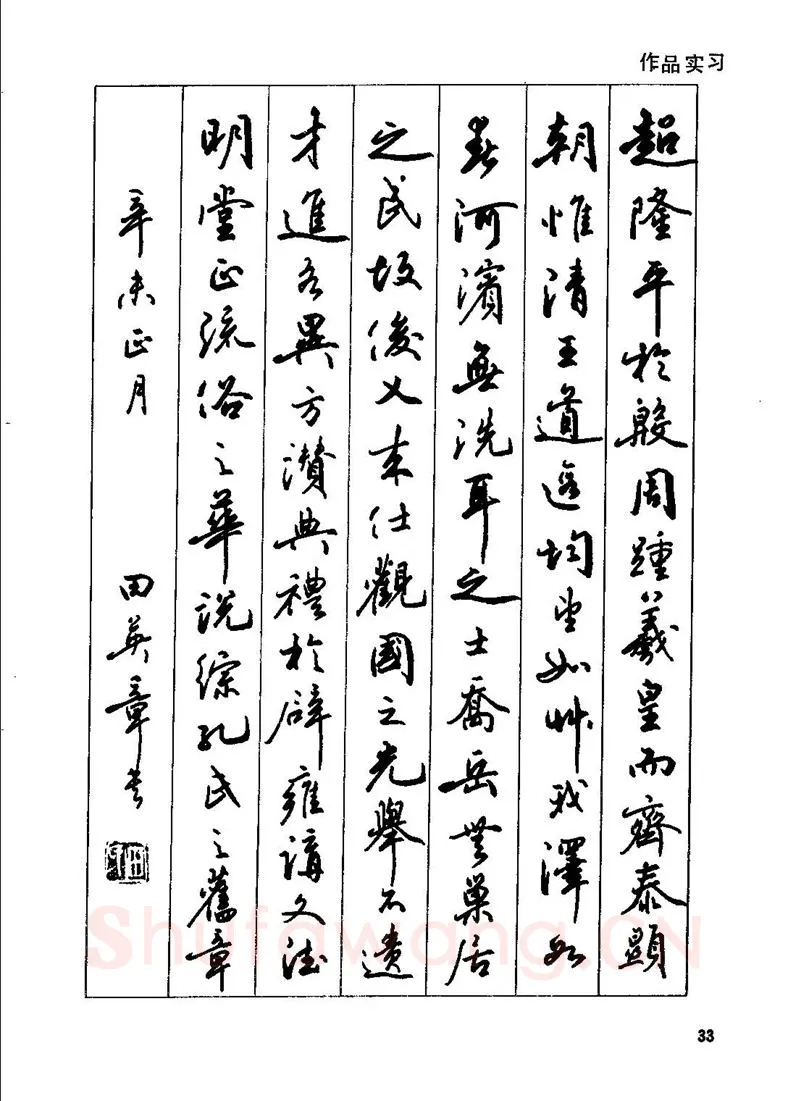 作品实习
超隆平於殷周踵羲皇而齊泰顯
朝惟清王道遐均望如艸我澤如
春河濱無洗耳之士喬岳無巢居
之民故俊乂來仕觀國之光舉不遺
才進各異方讚典禮於辟雍講文德
明堂正流俗之華説綜孔氏之舊章
辛未正月 田英章书
Shufawang.CN
33